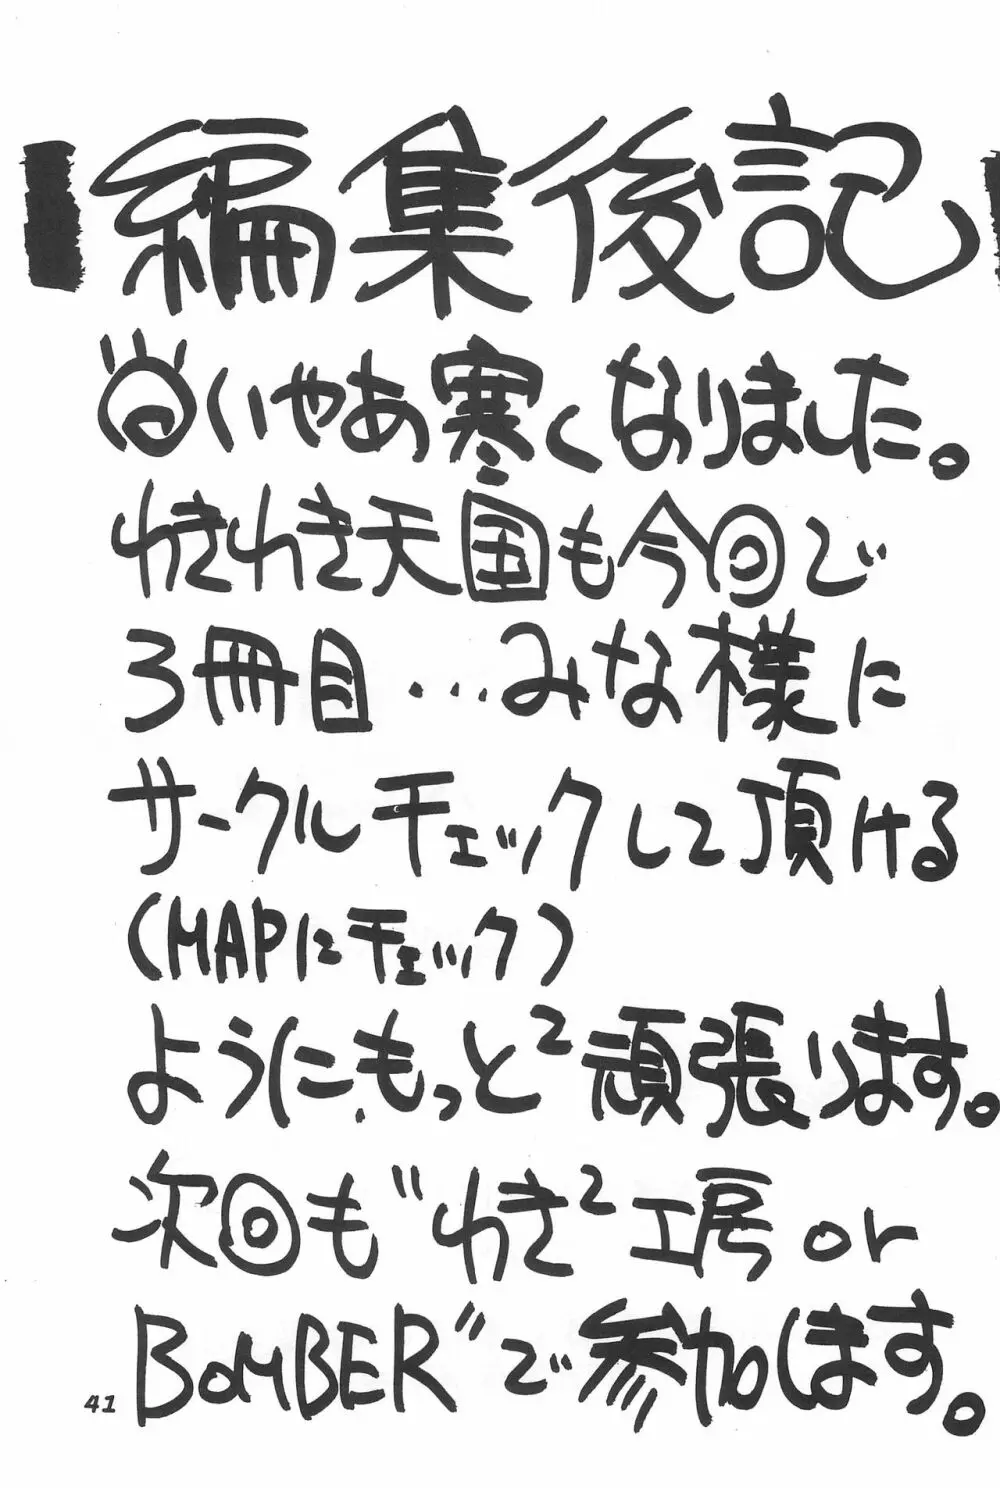 編集後記
いやあ寒くなりました。
わきわき天国も今回で
3冊目...みな様に
サークルチェックして頂ける
(MAPにチェック)
ように、もっと²頑張ります。
次回も"わき²工房or
BOMBER"で参加します。
41